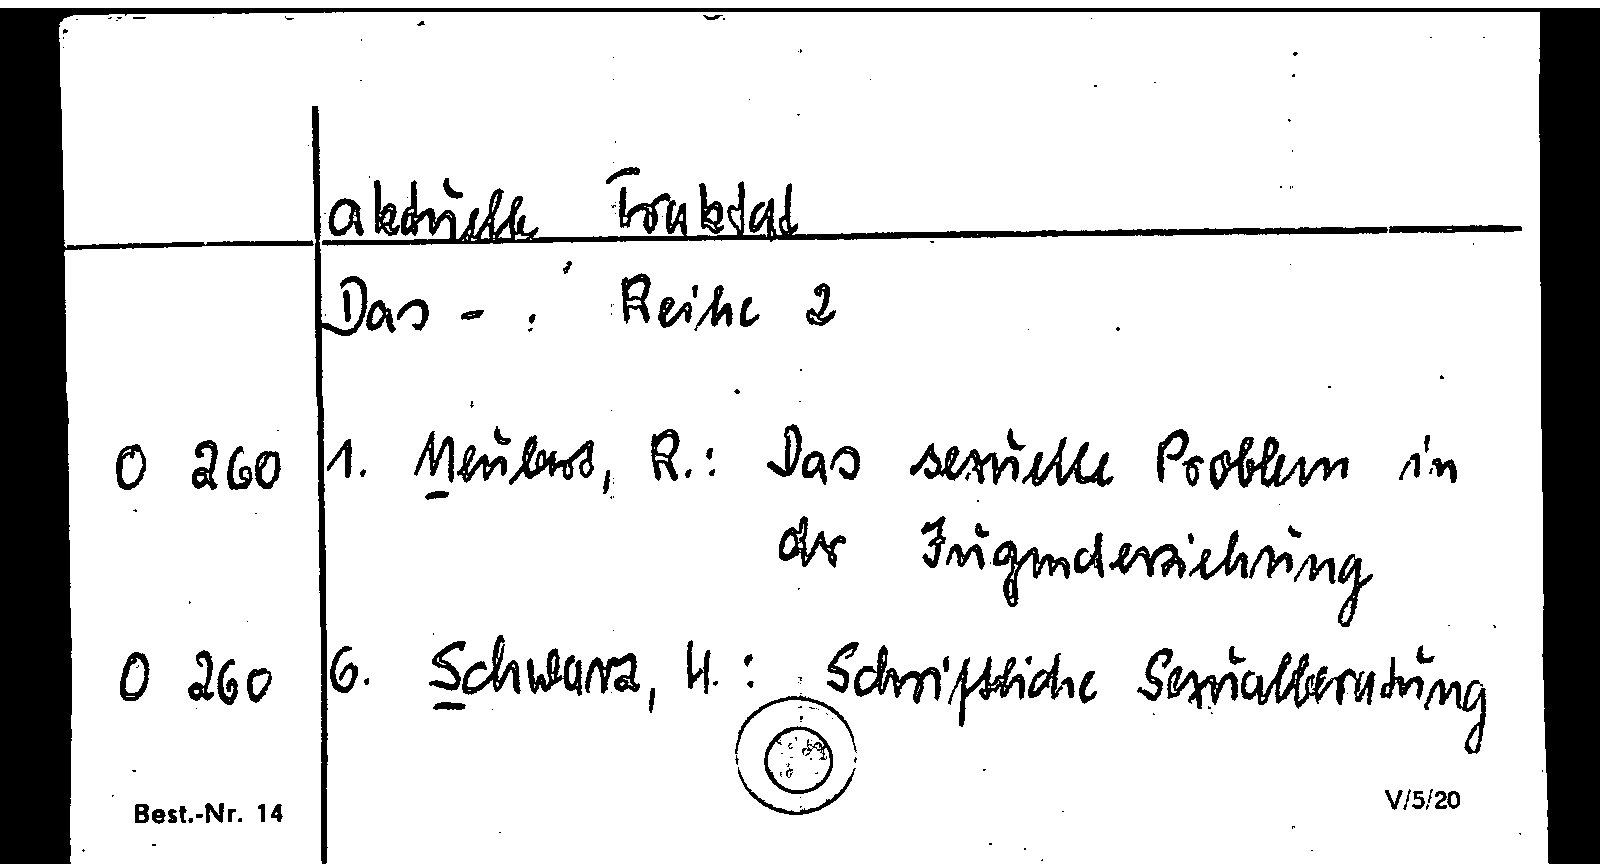 aktuelle Traktat
Das - . Reihe 2
O 260 1. Neubert, R.: Das sexuelle Problem in
der Jugenderziehung
O 260 6. Schwarz, H.: Schriftliche Sexualberatung
Best.-Nr. 14 V/5/20